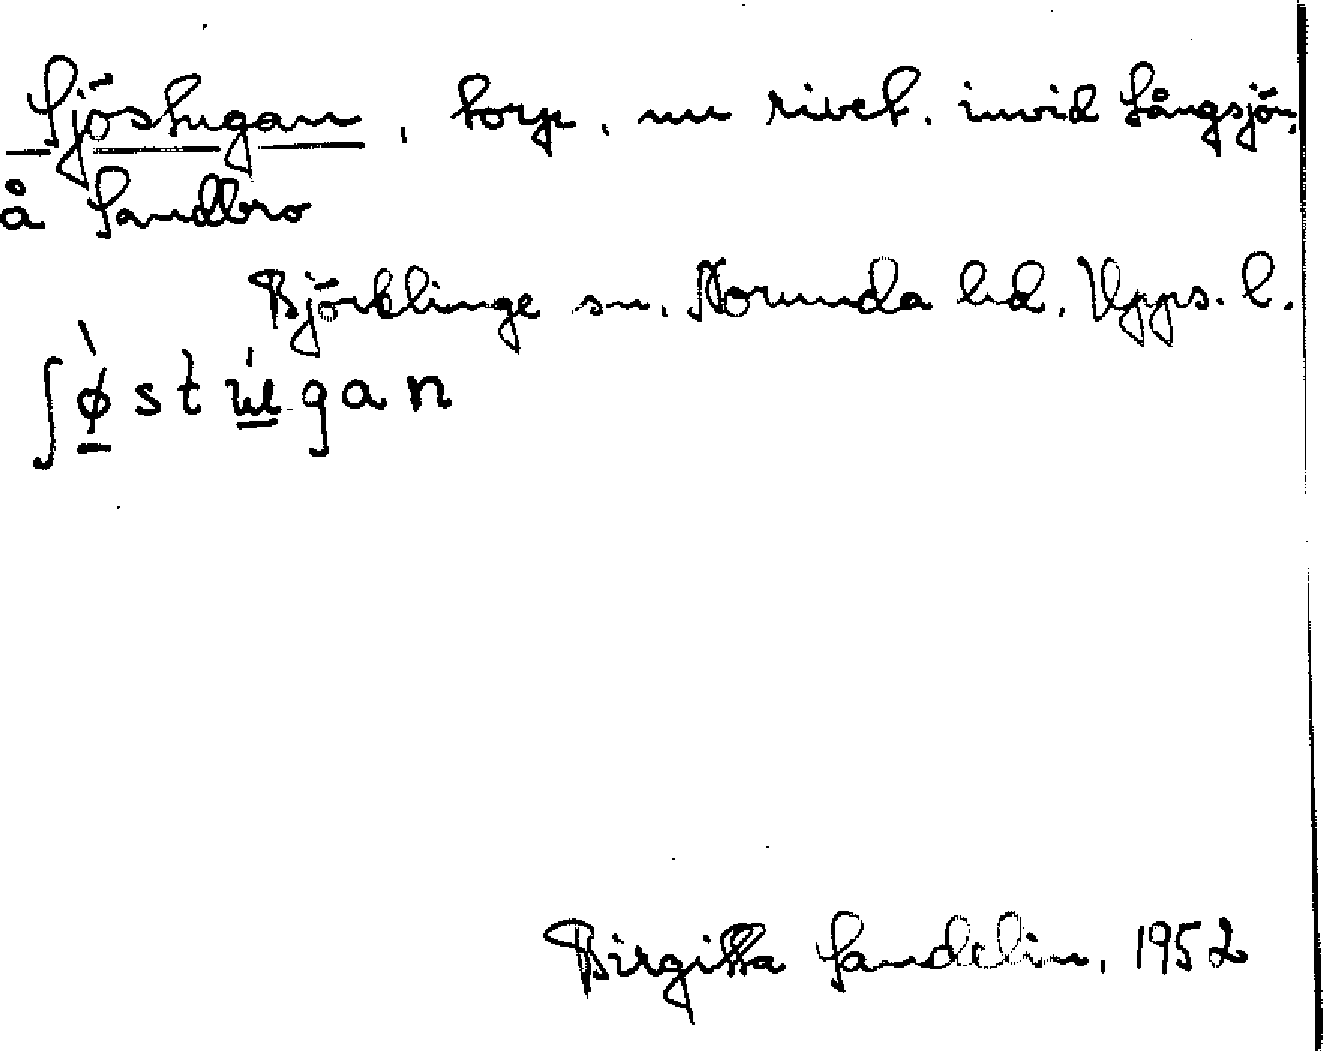 Sjöstugan, torp, nu rivet, invid Långsjön,
å Sandbro
Björklinge sn, Norunda hd, Upps. l.
Birgitta Sandelin, 1952